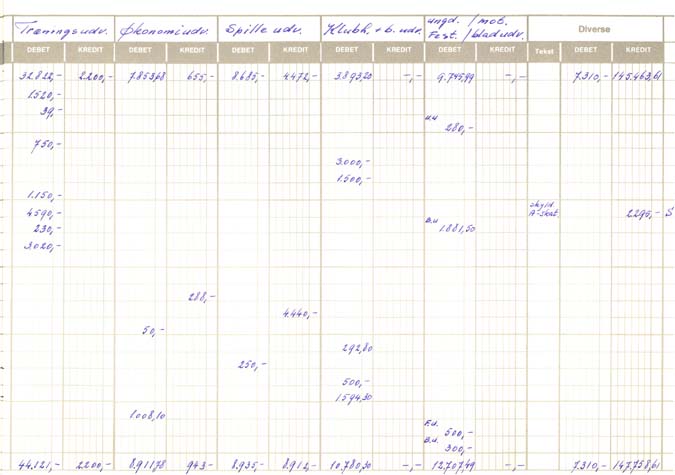 Træningsudv. Økonomiudv. Spille udv. Klubh. + b. udv. ungd. / mot.
Fest. / bladudv. Diverse
DEBET KREDIT DEBET KREDIT DEBET KREDIT DEBET KREDIT DEBET KREDIT Tekst DEBET KREDIT
32.822,- 2200,- 7.853,68 655,- 8.685,- 4.472,- 3.893,20 -,- 9.745,99 -,- 7.310,- 145.463,61
1.520,-
39,-
u.u 280,-
750,-
3.000,-
1.500,-
1.150,-
skyld.
4590,- A-skat 2295,- S
230,- B.u 1.881,50
3.020,-
288,-
4.440,-
50,-
292,80
250,-
500,-
1.594,30
1.008,10
F.u. 500,-
B.u. 300,-
44.121,- 2200,- 8.911,78 943,- 8.935,- 8.912,- 10.780,30 -,- 12.707,49 -,- 7.310,- 147.758,61